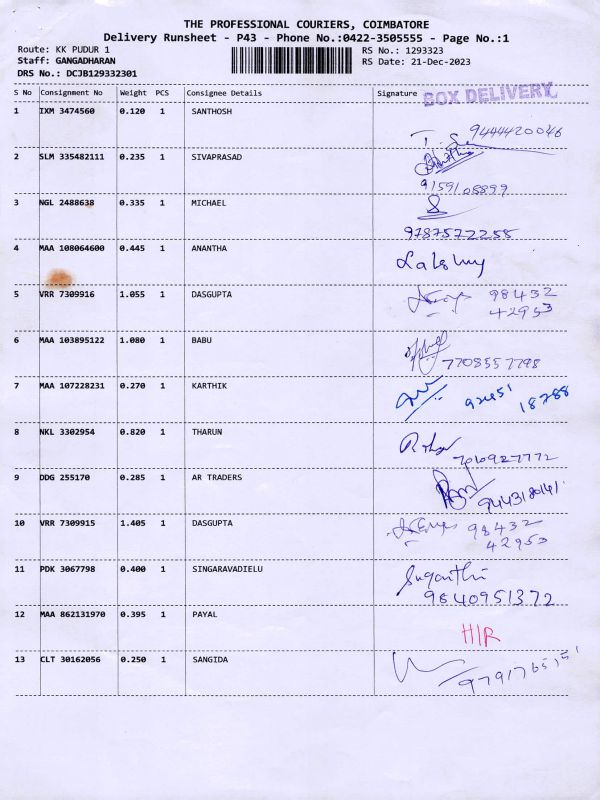 THE PROFESSIONAL COURIERS, COIMBATORE
Delivery Runsheet - P43 - Phone No.:0422-3505555 - Page No.:1
Route: KK PUDUR 1 RS No.: 1293323
Staff: GANGADHARAN RS Date: 21-Dec-2023
DRS No.: DCJB129332301
S No Consignment No Weight PCS Consignee Details Signature BOX DELIVERY
1 IXM 3474560 0.120 1 SANTHOSH
9444420046
2 SLM 335482111 0.235 1 SIVAPRASAD
9159108899
3 NGL 2488638 0.335 1 MICHAEL
9787572258
4 MAA 108064600 0.445 1 ANANTHA
Lakshmy
5 VRR 7309916 1.055 1 DASGUPTA 98432
42953
6 MAA 103895122 1.080 1 BABU
7708557798
7 MAA 107228231 0.270 1 KARTHIK
92451 18788
8 NKL 3302954 0.820 1 THARUN
7010927772
9 DDG 255170 0.285 1 AR TRADERS
9443180141
10 VRR 7309915 1.405 1 DASGUPTA 98432
42953
11 PDK 3067798 0.400 1 SINGARAVADIELU
Suganthi
9840951372
12 MAA 862131970 0.395 1 PAYAL
H/R
13 CLT 30162056 0.250 1 SANGIDA
9791765151